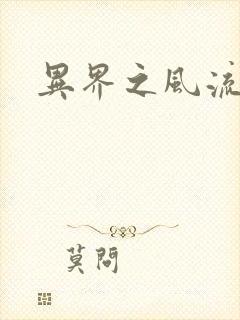 異界之風流
莫問